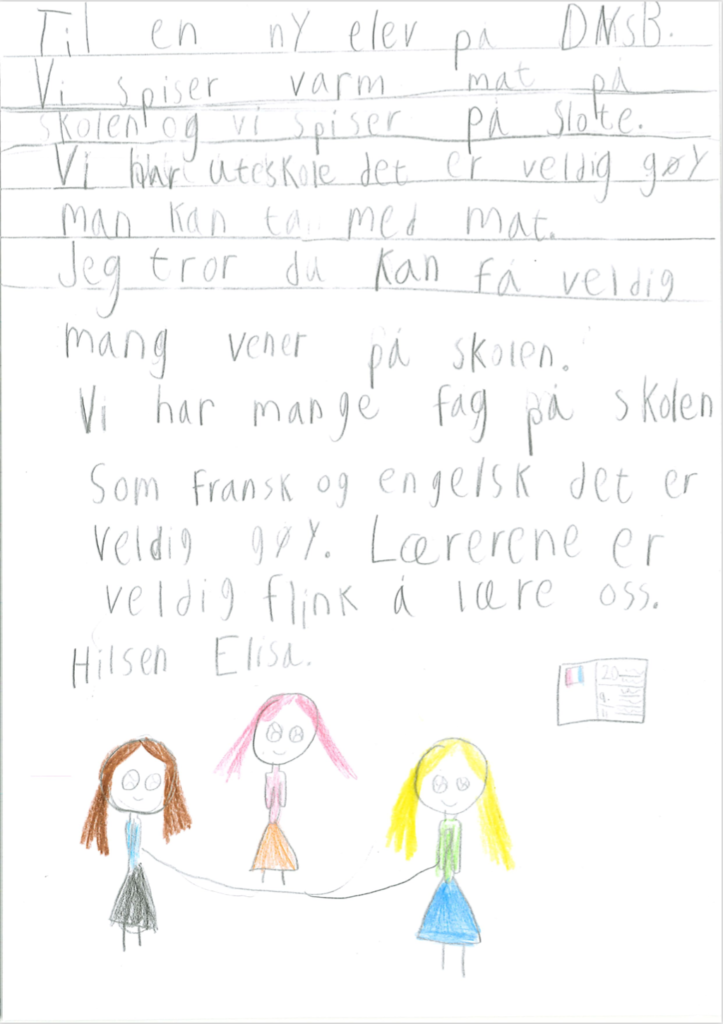 Til en ny elev på DNSB.
Vi spiser varm mat på
skolen og vi spiser på slote.
Vi har uteskole det er veldig gøy
man kan ta med mat.
Jeg tror du kan få veldig
mang vener på skolen.
Vi har mange fag på skolen
Som fransk og engelsk det er
veldig gøy. Lærerene er
veldig flink å lære oss.
Hilsen Elisa.